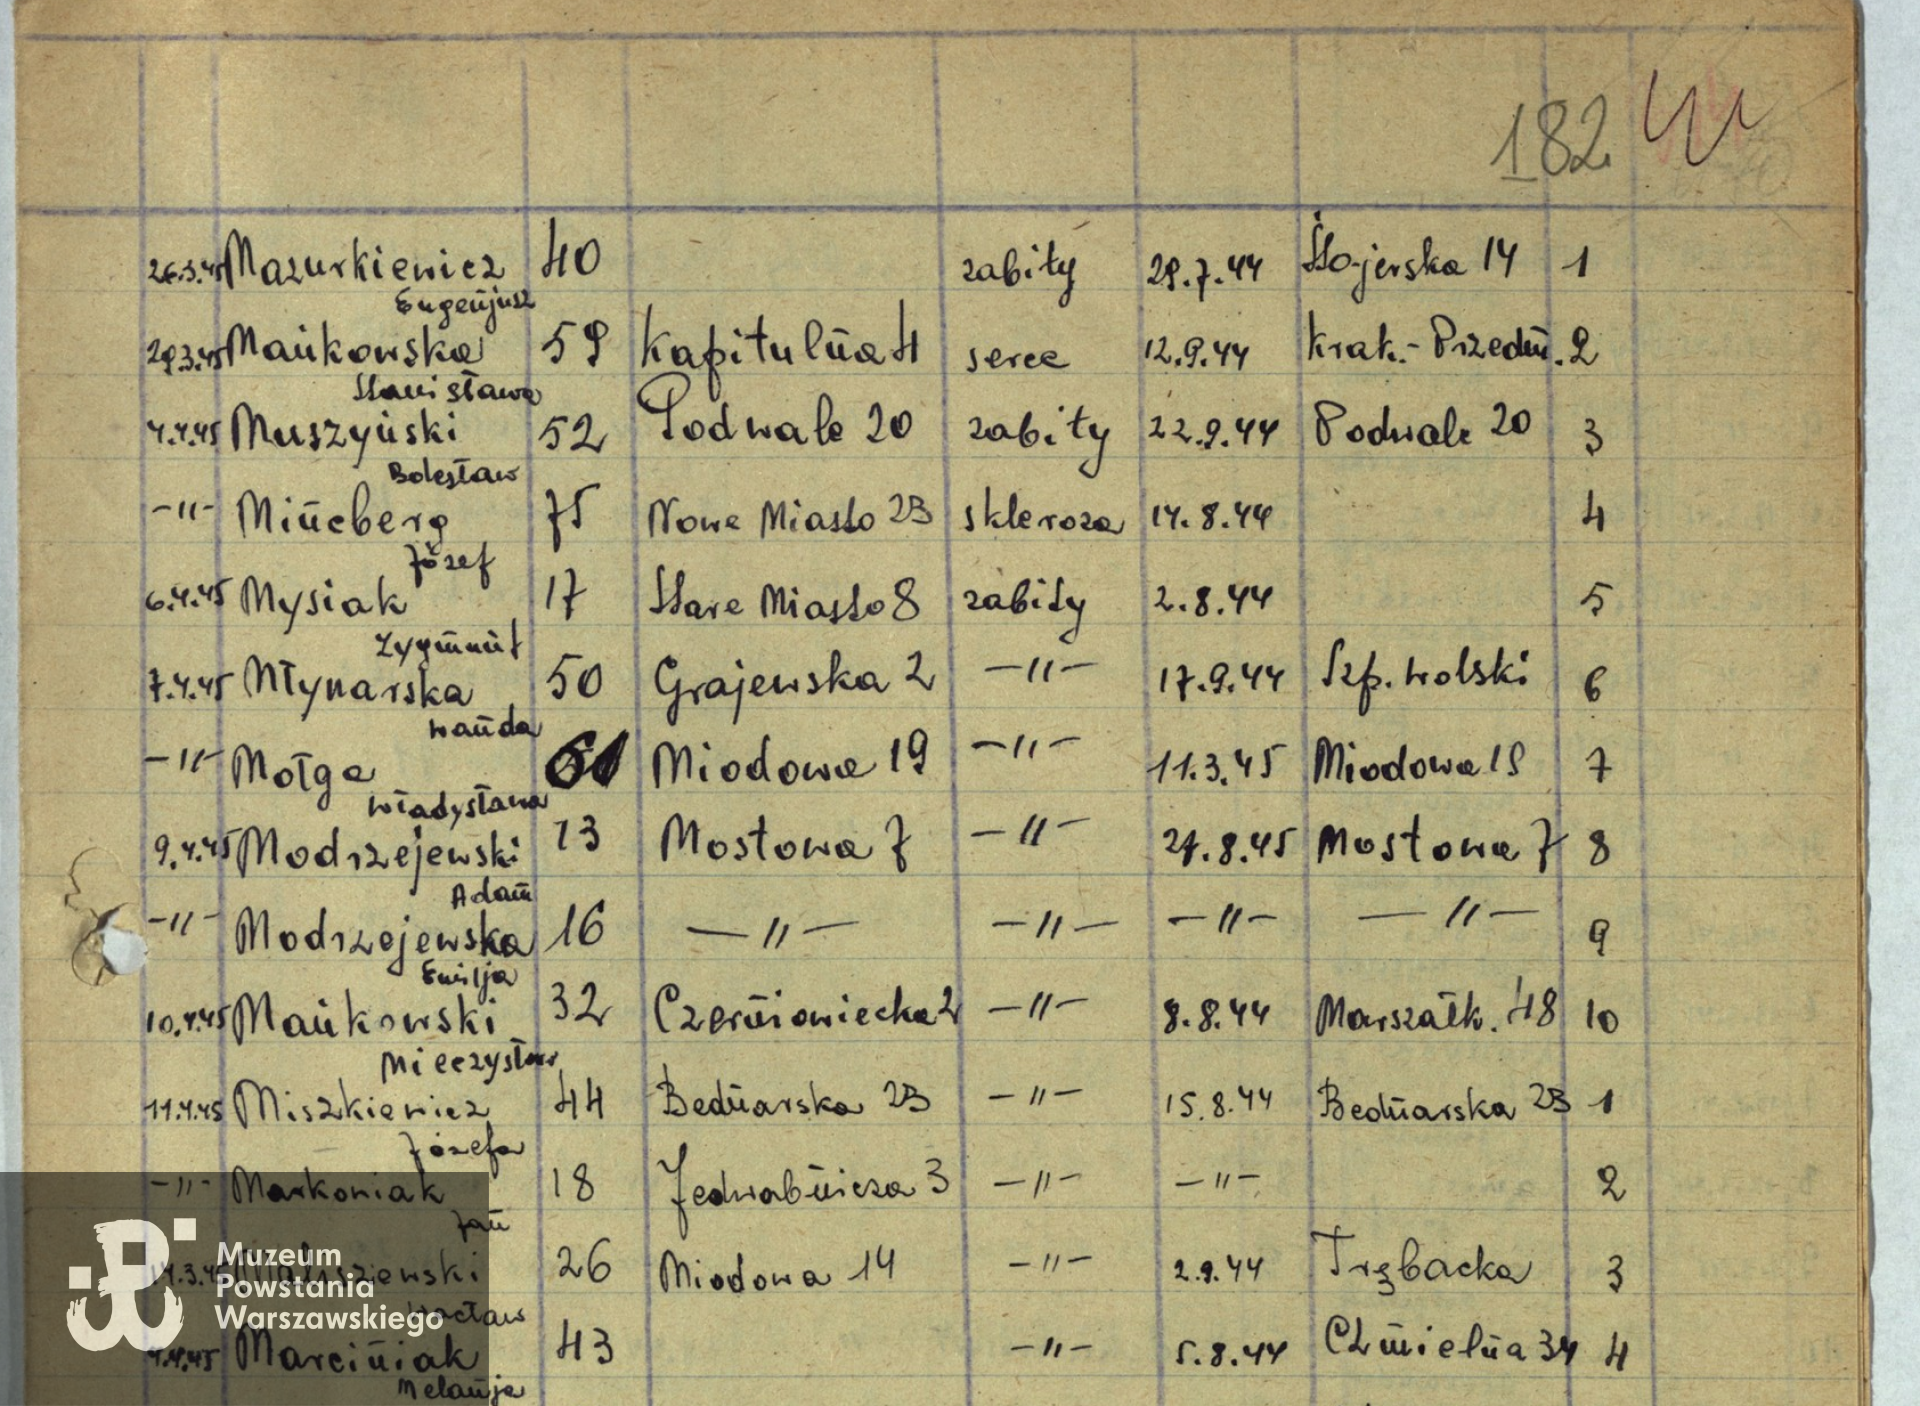 182
26.3.45 Mazurkiewicz 40 zabity 29.7.44 Sto-jerska 14 1
Eugenjusz
29.3.45 Mankowska 59 Kapitulna 4 serce 12.9.44 Krak.-Przedm. 2
Stanisława
4.4.45 Muszyński 52 Podwale 20 zabity 22.9.44 Podwale 20 3
Bolesław
-"- Minceberg 75 Nowe Miasto 23 skleroza 14.8.44 4
Józef
6.4.45 Mysiak 17 Stare Miasto 8 zabity 2.8.44 5
Zygmunt
7.4.45 Młynarska 50 Grajewska 2 -"- 17.9.44 Szp. Wolski 6
Wanda
-"- Mołga 61 Miodowa 19 -"- 11.3.45 Miodowa 19 7
Władysława
9.4.45 Modrzejewski 13 Mostowa 7 -"- 27.8.45 Mostowa 7 8
Adam
-"- Modrzejewska 16 -"- -"- -"- -"- 9
Emilja
10.4.45 Mankowski 32 Czerniowiecka 2 -"- 8.8.44 Marszałk. 48 10
Mieczysław
11.4.45 Miszkiewicz 44 Bednarska 23 -"- 15.8.44 Bednarska 23 1
Józefa
-"- Markoniak 18 Jedwabnicza 3 -"- -"- 2
Jan
26 Miodowa 14 -"- 2.9.44 Trębacka 3
Wacław
4.4.45 Marciniak 43 -"- 5.8.44 Chmielna 34 4
Melanja
Muzeum
Powstania
Warszawskiego